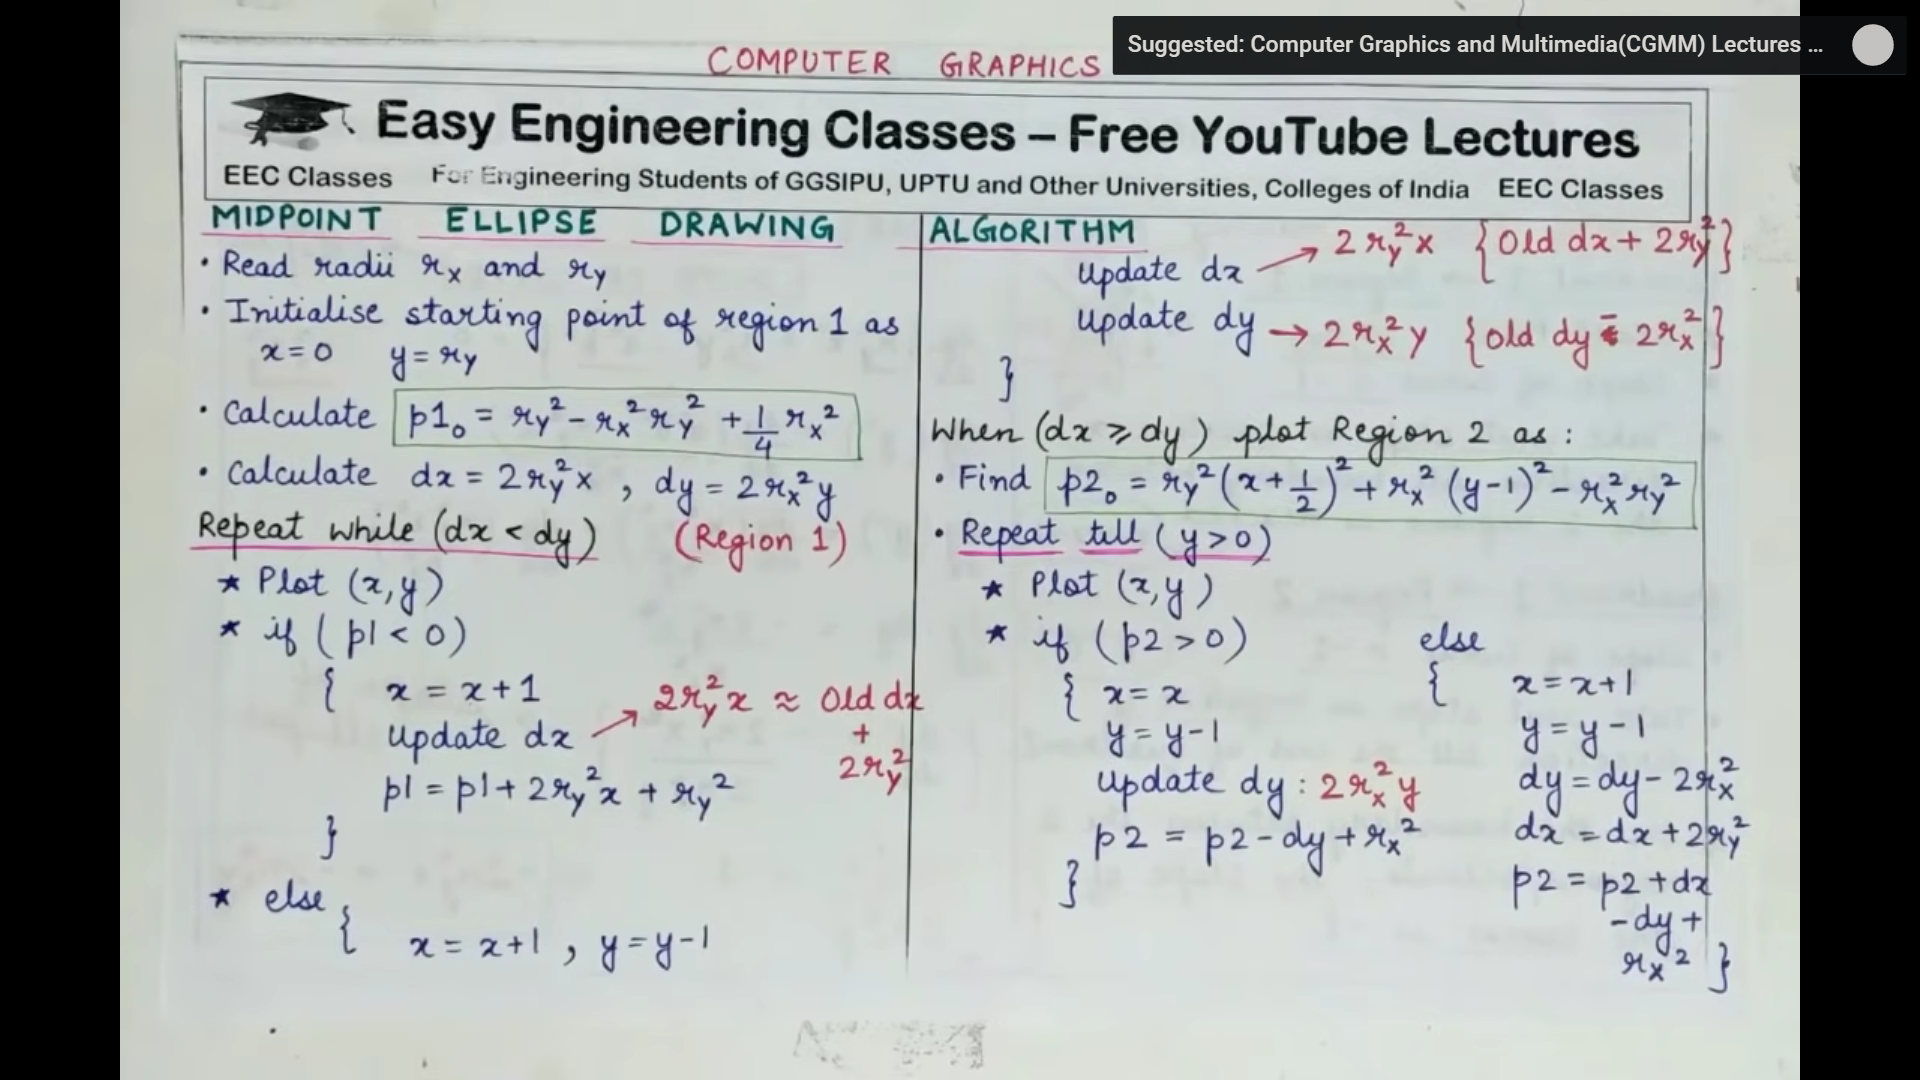 Suggested: Computer Graphics and Multimedia(CGMM) Lectures ...
COMPUTER GRAPHICS
Easy Engineering Classes – Free YouTube Lectures
EEC Classes For Engineering Students of GGSIPU, UPTU and Other Universities, Colleges of India EEC Classes
MIDPOINT ELLIPSE DRAWING ALGORITHM
• Read radii rx and ry
• Initialise starting point of region 1 as
x=0 y=ry
• Calculate p1₀ = ry² - rx² ry² + 1/4 rx²
• Calculate dx = 2ry²x , dy = 2rx²y
Repeat while (dx < dy) (Region 1)
★ Plot (x,y)
★ if ( p1 < 0)
{ x = x+1
Update dx → 2ry²x ≈ Old dx
+
2ry²
p1 = p1 + 2ry²x + ry²
}
★ else
{ x = x+1 , y = y-1
Update dx → 2ry²x {Old dx + 2ry²}
Update dy → 2rx²y {Old dy - 2rx²}
}
When (dx ≥ dy) plot Region 2 as :
• Find p2₀ = ry²(x+1/2)² + rx²(y-1)² - rx²ry²
• Repeat till (y>0)
★ Plot (x,y)
★ if (p2 > 0)
{ x = x
y = y-1
Update dy : 2rx²y
p2 = p2 - dy + rx²
}
else
{ x = x+1
y = y-1
dy = dy - 2rx²
dx = dx + 2ry²
p2 = p2 + dx
- dy +
rx² }